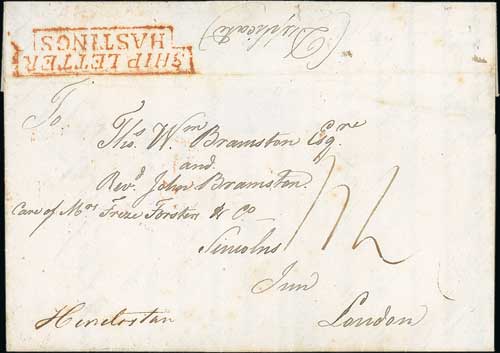 SHIP LETTER
HASTINGS
(Duplicate)
To
Thos. Wm. Bramston Esqre
and
Revd. John Bramston.
Care of Mrs Freze Forsten & Co
Lincolns
Inn
London
Hindostan
1/2